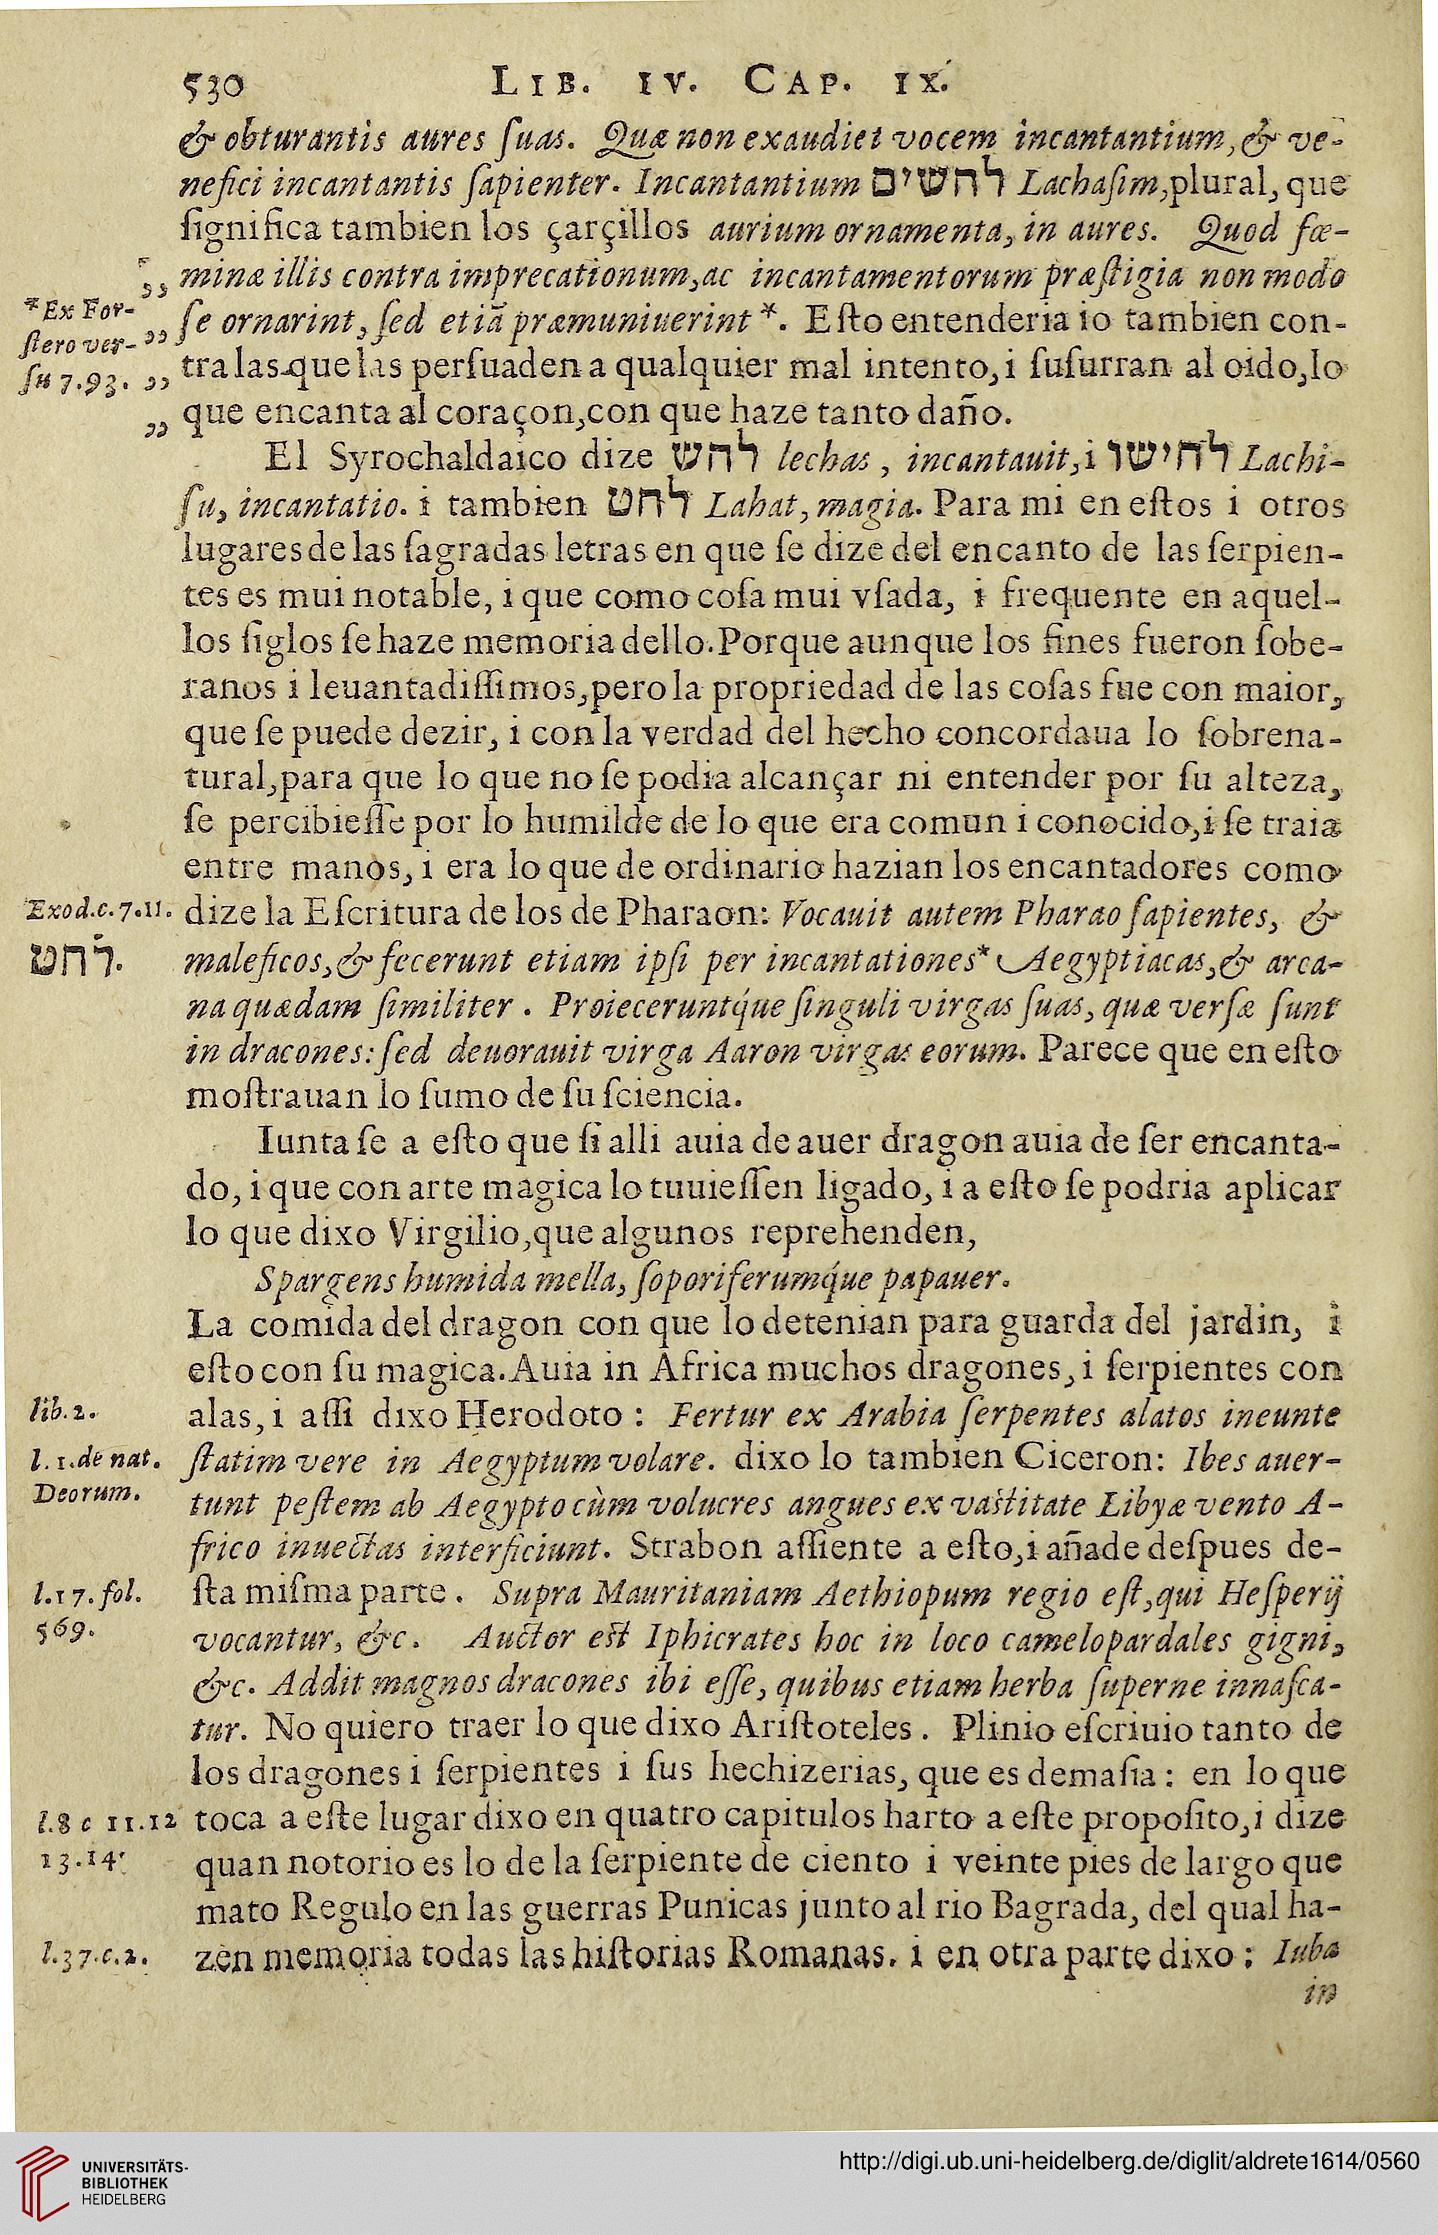 530 LIB. IV. CAP. IX.
& obturantis aures ſuas. Quæ non exaudiet vocem incantantium, & ve-
nefici incantantis ſapienter. Incantantium לחשים Lachaſim, plural, que
ſignifica tambien los çarçillos aurium ornamenta, in aures. Quod fœ-
„ minæ illis contra imprecationum, ac incantamentorum præſtigia non modo
*Ex For-
„ ſe ornarint, ſed etiã præmuniuerint *. Eſto entenderia io tambien con-
ſtero ver-
ſu 7.93.
„ tra las que las perſuaden a qualquier mal intento, i ſuſurran al oido, lo
„ que encanta al coraçon, con que haze tanto daño.
El Syrochaldaico dize לחש lechas, incantauit, i לחישו Lachi-
ſu, incantatio. i tambien לחט Lahat, magia. Para mi en eſtos i otros
lugares de las ſagradas letras en que ſe dize del encanto de las ſerpien-
tes es mui notable, i que como coſa mui vſada, i frequente en aquel-
los ſiglos ſe haze memoria dello. Porque aunque los fines fueron ſobe-
ranos i leuantadiſſimos, pero la propriedad de las coſas fue con maior,
que ſe puede dezir, i con la verdad del hecho concordaua lo ſobrena-
tural, para que lo que no ſe podia alcançar ni entender por ſu alteza,
ſe percibieſſe por lo humilde de lo que era comun i conocido, i ſe traia
entre manos, i era lo que de ordinario hazian los encantadores como
Exod.c.7.11. dize la Eſcritura de los de Pharaon: Vocauit autem Pharao ſapientes, &
לחט. maleficos, & fecerunt etiam ipſi per incantationes* Aegyptiacas, & arca-
na quædam ſimiliter. Proieceruntq́ue ſinguli virgas ſuas, quæ verſæ ſunt
in dracones: ſed deuorauit virga Aaron virgas eorum. Parece que en eſto
moſtrauan lo ſumo de ſu ſciencia.
Iunta ſe a eſto que ſi alli auia de auer dragon auia de ſer encanta-
do, i que con arte magica lo tuuieſſen ligado, i a eſto ſe podria aplicar
lo que dixo Virgilio, que algunos reprehenden,
Spargens humida mella, ſoporiferumq́ue papauer.
La comida del dragon con que lo detenian para guarda del jardin, i
eſto con ſu magica. Auia in Africa muchos dragones, i ſerpientes con
lib.2. alas, i aſſi dixo Herodoto: Fertur ex Arabia ſerpentes alatos ineunte
l.1.de nat. ſtatim vere in Aegyptum volare. dixo lo tambien Ciceron: Ibes auer-
Deorum. tunt peſtem ab Aegypto cùm volucres angues ex vastitate Libyæ vento A-
frico inuectas interficiunt. Strabon aſſiente a eſto, i añade deſpues de-
l.17.fol. ſta miſma parte. Supra Mauritaniam Aethiopum regio eſt, qui Heſperij
569. vocantur, &c. Auctor est Iphicrates hoc in loco camelopardales gigni,
&c. Addit magnos dracones ibi eſſe, quibus etiam herba ſuperne innaſca-
tur. No quiero traer lo que dixo Ariſtoteles. Plinio eſcriuio tanto de
los dragones i ſerpientes i ſus hechizerias, que es demaſia: en lo que
l.8 c 11.12 toca a eſte lugar dixo en quatro capitulos harto a eſte propoſito, i dize
13.14. quan notorio es lo de la ſerpiente de ciento i veinte pies de largo que
mato Regulo en las guerras Punicas junto al rio Bagrada, del qual ha-
l.37.c.2. zen memoria todas las hiſtorias Romanas. i en otra parte dixo: Iuba
in
UNIVERSITÄTS-
BIBLIOTHEK
HEIDELBERG
http://digi.ub.uni-heidelberg.de/diglit/aldrete1614/0560